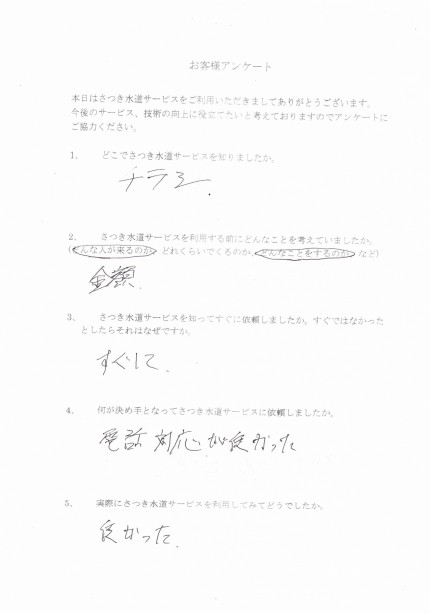 お客様アンケート
本日はさつき水道サービスをご利用いただきましてありがとうございます。
今後のサービス、技術の向上に役立てたいと考えておりますのでアンケートに
ご協力ください。
1、 どこでさつき水道サービスを知りましたか。
チラシ.
2、 さつき水道サービスを利用する前にどんなことを考えていましたか。
(どんな人が来るのか、どれくらいでくるのか、どんなことをするのか、など)
金額.
3、 さつき水道サービスを知ってすぐに依頼しましたか。すぐではなかった
としたらそれはなぜですか。
すぐにて.
4、 何が決め手となってさつき水道サービスに依頼しましたか。
電話対応が良かった
5、 実際にさつき水道サービスを利用してみてどうでしたか。
良かった.